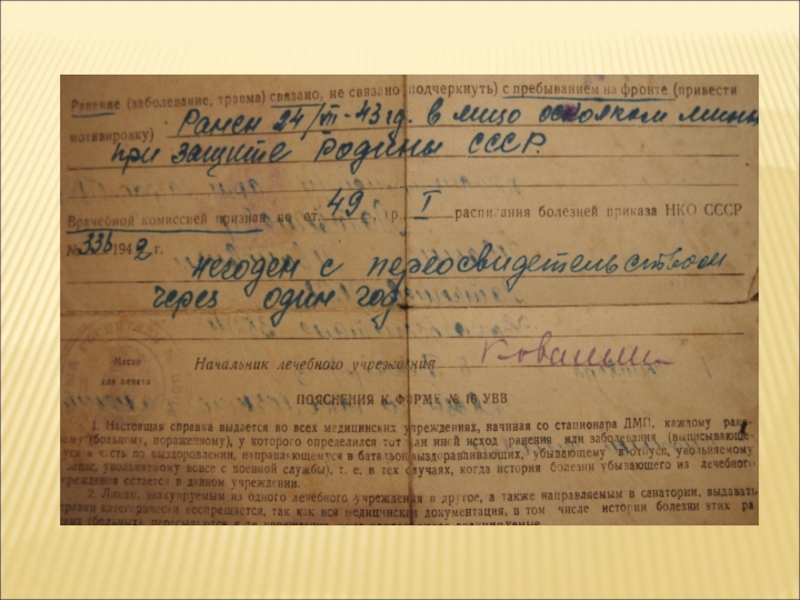 Ранение (заболевание, травма) связано, не связано (подчеркнуть) с пребыванием на фронте (привести
мотивировку) Ранен 24/VII-43 гд. в лицо осколком мины
при защите Родины СССР.
Врачебной комиссией признан по ст. 49, гр. I расписания болезней приказа НКО СССР
№ 336 1942 г.
негоден с переосвидетельством
через один год
Место
для печати
Начальник лечебного учреждения
ПОЯСНЕНИЯ К ФОРМЕ № 16 УВВ
1. Настоящая справка выдается во всех медицинских учреждениях, начиная со стационара ДМП, каждому ране-
ному (больному, пораженному), у которого определился тот или иной исход ранения или заболевания (выписывающе-
уся в часть по выздоровлении, направляющемуся в батальон выздоравливающих, убывающему в отпуск, увольняемому
запас, увольняемому вовсе с военной службы), т. е. в тех случаях, когда история болезни убывающего из лечебного
учреждения остается в данном учреждении.
2. Лицам, эвакуируемым из одного лечебного учреждения в другое, а также направляемым в санатории, выдавать
справки категорически воспрещается, так как вся медицинская документация, в том числе истории болезни этих ра
(больных) пересылаются в те учреждения